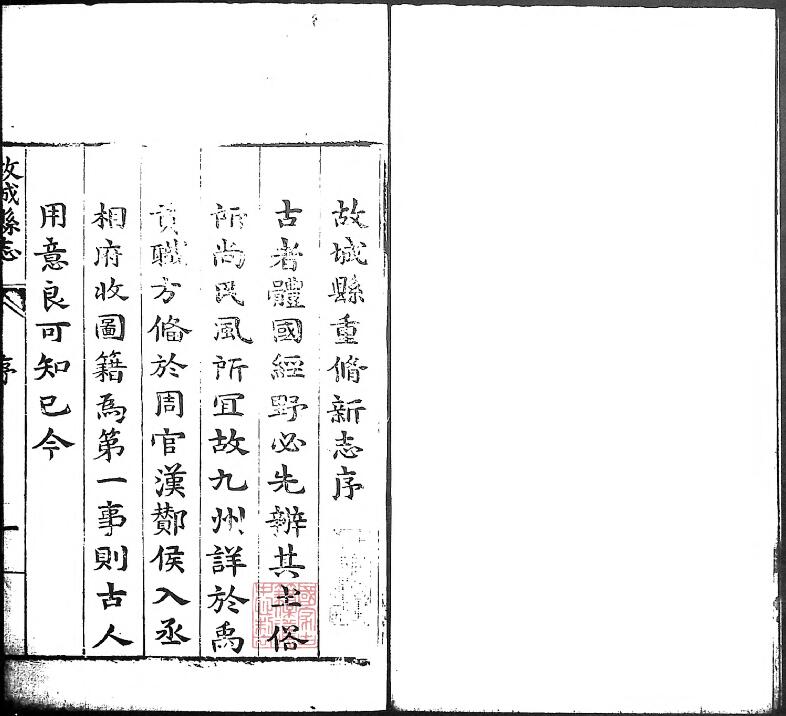 故城縣重脩新志序
古者體國經野必先辨其土俗
所尚民風所宜故九州詳於禹
貢職方偹於周官漢酇侯入丞
相府收圖籍為第一事則古人
用意良可知已今
故城縣志
序
一